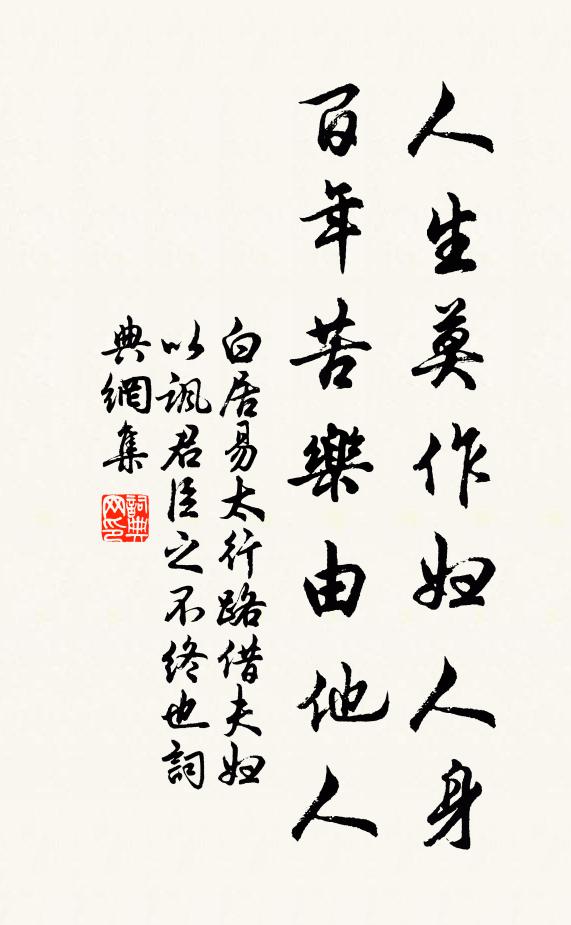 人生莫作妇人身
百年苦樂由他人
白居易太行路借夫妇
以諷君臣之不终也詞
典網集
詞典网印